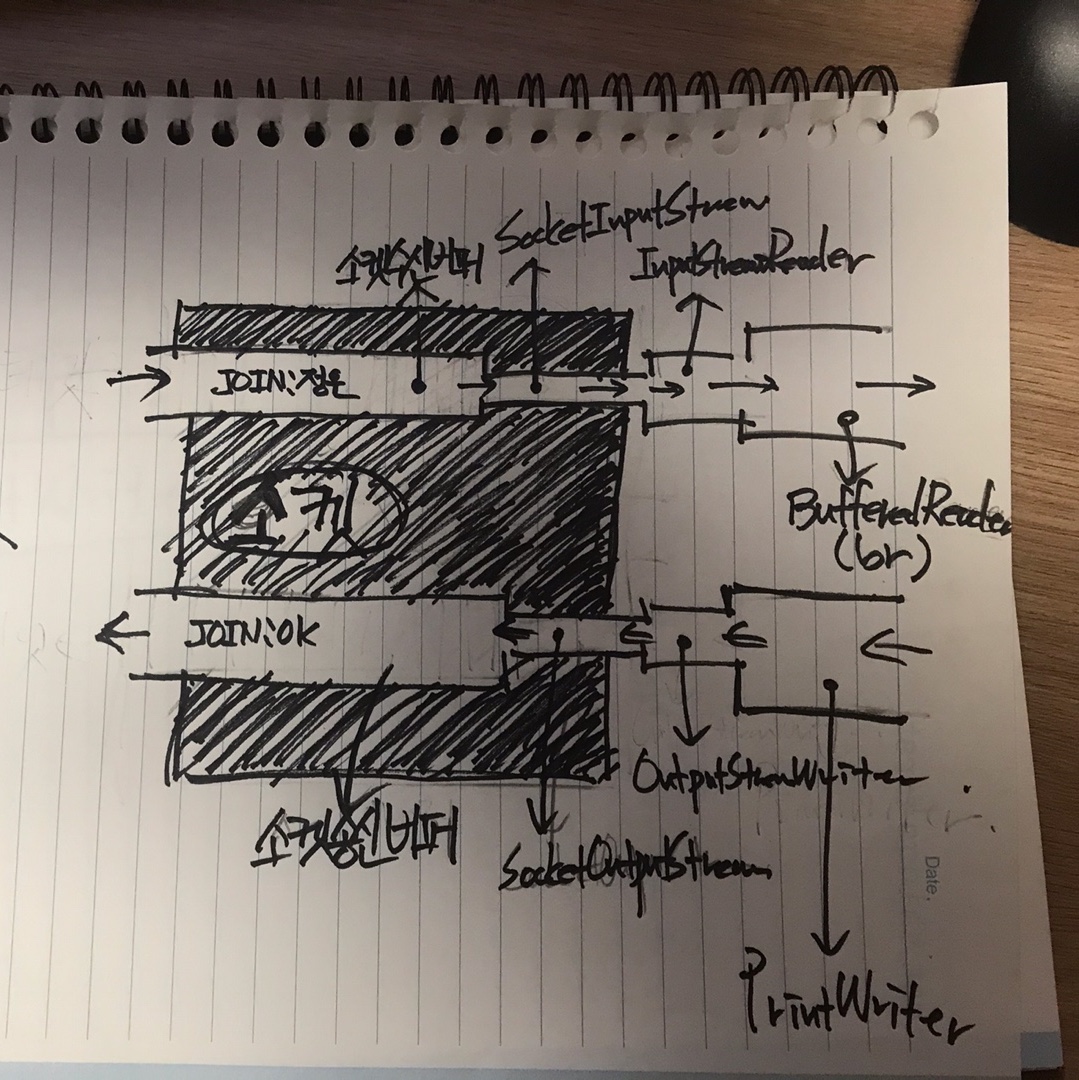 SocketInputStream
소켓수신버퍼
InputStreamReader
JOIN:정은
소켓
BufferedReader
(br)
JOIN:OK
OutputStreamWriter
소켓송신버퍼
SocketOutputStream
Date.
PrintWriter